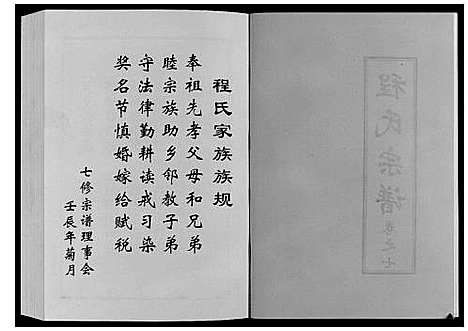 程氏家族族规
奉祖先孝父母和兄弟
睦宗族助乡邻教子弟
守法律勤耕读戒习染
奖名节慎婚嫁给赋税
七修宗谱理事会
壬辰年菊月
程氏宗谱
卷之七